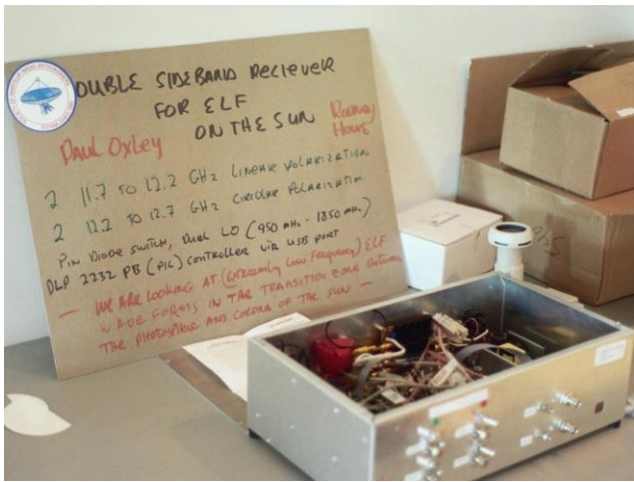 DOUBLE SIDEBAND RECIEVER
FOR ELF
ON THE SUN
Paul Oxley
Rodney Howe
2 11.7 TO 12.2 GHz LINEAR POLARIZATION
2 12.2 TO 12.7 GHz CIRCULAR POLARIZATION
PIN DIODE SWITCH, DUAL LO (950 mHz - 1850 mHz)
DLP 2232 PB (PIC) CONTROLLER VIA USB PORT
— WE ARE LOOKING AT (EXTREMELY LOW FREQUENCY) ELF
WAVE FORMS IN THE TRANSITION ZONE BETWEEN
THE PHOTOSPHERE AND CORONA OF THE SUN —